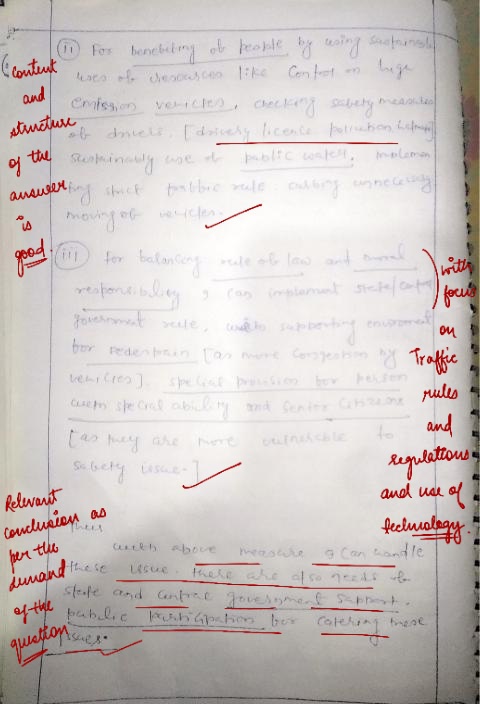 (ii) For benebiting ob people by using sustainable
uses ob resources like Control on high
emission vehicles, checking sabety measures
ob drivers. [drivery licence pollution
sustainably use ob public water, implemen
ting strict trabbic rule. curbing unnecessary
moving ob vehicles.
(iii) for balancing rule ob law and moral
responsibility I can implement state/central
government rule, with supporting enviroment
bor Pedestrain [as more congestion by
vehicles]. special provision bor person
with special ability and senior citizens
[as they are more vulnerable to
sabety issue.]
thus
with above measure I can handle
these issue. there are also needs ob
state and central government support.
public participation bor catering these
issues.
Content
and
structure
of the
answer
is
good.
with
focus
on
Traffic
rules
and
regulations
and use of
technology.
Relevant
conclusion as
per the
demand
of the
question